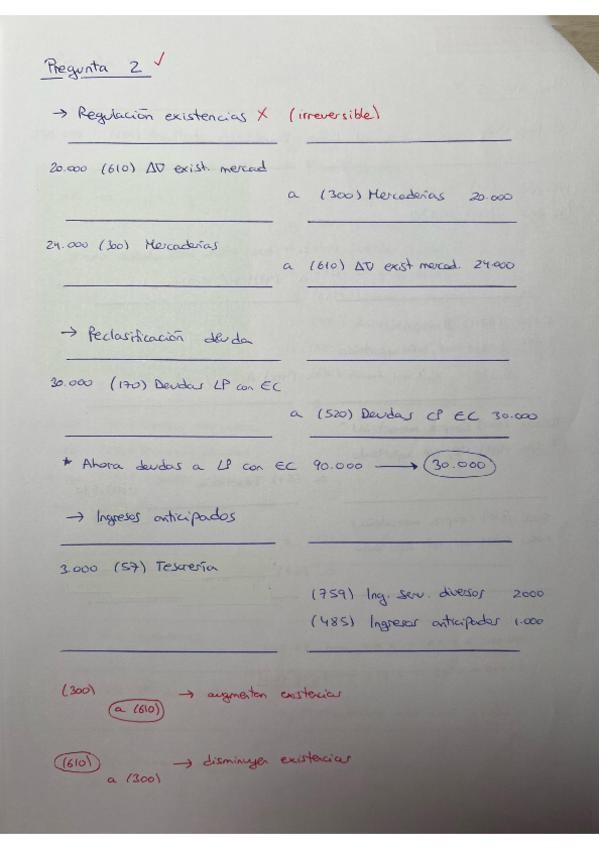 Pregunta 2 ✓
→ Regulación existencias X (irreversible)
20.000 (610) ΔV exist. mercad
a (300) Mercaderías 20.000
24.000 (300) Mercaderías
a (610) ΔV exist mercad. 24.000
→ Reclasificación deuda
30.000 (170) Deudas LP con EC
a (520) Deudas CP EC 30.000
* Ahora deudas a LP con EC 90.000 → 30.000
→ Ingresos anticipados
3.000 (57) Tesorería
(759) Ing. serv. diversos 2000
(485) Ingresos anticipados 1.000
(300)
a (610) → aumentan existencias
(610) → disminuyen existencias
a (300)